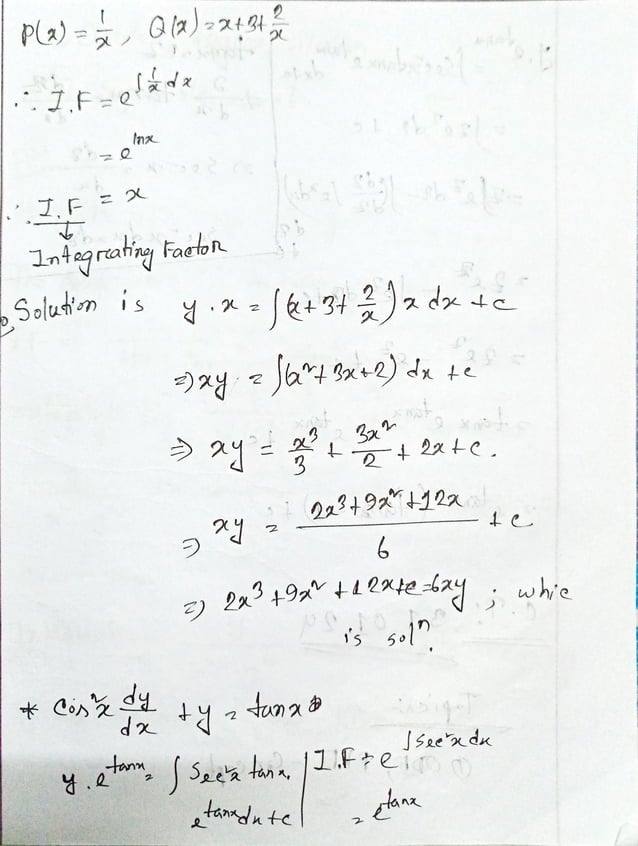 P(x) = 1/x, Q(x) = x+3+2/x
∴ I.F = e^∫1/x dx
= e^lnx
∴ I.F = x
↓
Integrating Factor
Solution is y.x = ∫(x+3+2/x) x dx + c
⇒ xy = ∫(x²+3x+2) dx + c
⇒ xy = x³/3 + 3x²/2 + 2x+c.
⇒ xy = (2x³+9x²+12x)/6 + c
⇒ 2x³+9x²+12x+c=6xy ; whic
is solⁿ.
* cos²x dy/dx + y = tanx
y.e^tanx = ∫ sec²x tanx. | I.F = e^∫sec²x dx
e^tanx dx + c | = e^tanx